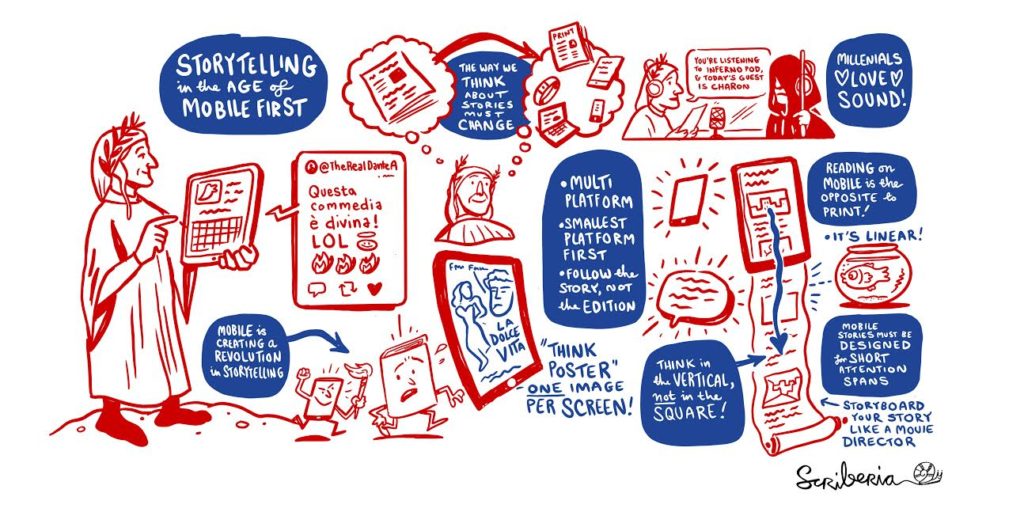 STORYTELLING
in the AGE of
MOBILE FIRST
THE WAY WE
THINK
ABOUT
STORIES
MUST
CHANGE
PRINT
YOU'RE LISTENING
TO INFERNO POD,
& TODAY'S GUEST
IS CHARON
MILLENIALS
♡LOVE♡
SOUND!
@TheRealDanteA
Questa
commedia
è divina!
LOL
• MULTI
PLATFORM
• SMALLEST
PLATFORM
FIRST
• FOLLOW the
STORY, NOT
the EDITION
READING on
MOBILE is the
OPPOSITE to
PRINT!
• IT'S LINEAR!
MOBILE is
CREATING a
REVOLUTION
in STORYTELLING
LA
DOLCE
VITA
"THINK
POSTER"
ONE IMAGE
PER SCREEN!
THINK in
the VERTICAL,
not in the
SQUARE!
MOBILE
STORIES MUST BE
DESIGNED
for SHORT
ATTENTION
SPANS
STORYBOARD
YOUR STORY
LIKE A MOVIE
DIRECTOR
Scriberia